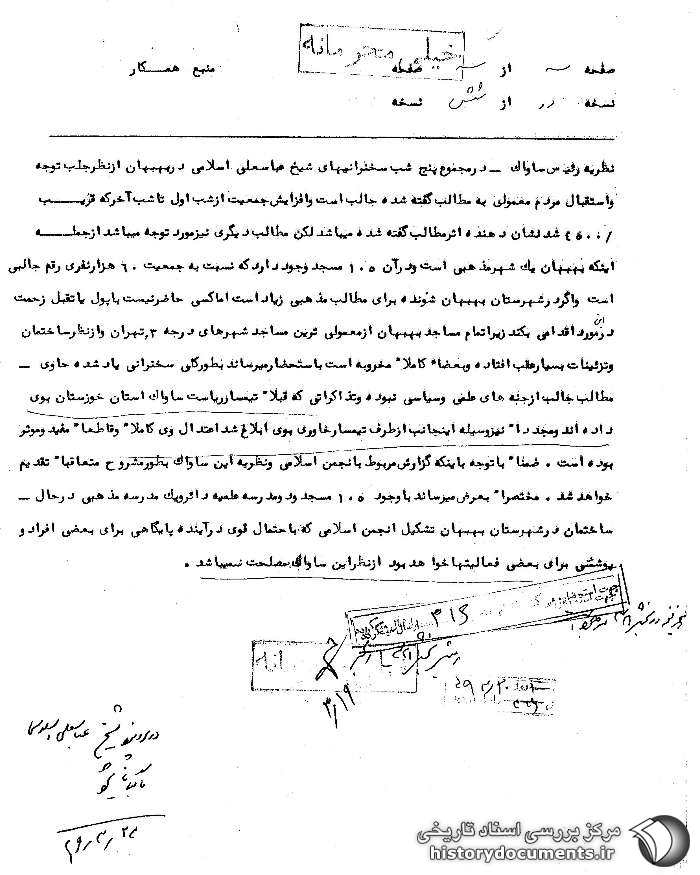 خیلی محرمانه
صفحه سه از سه صفحه
منبع همکار
نسخه دو از شش نسخه
نظریه رئیس ساواک ــ در مجموع پنج شب سخنرانیهای شیخ عباسعلی اسلامی در بهبهان از نظر جلب توجه
و استقبال مردم معمولی به مطالب گفته شده جالب است و افزایش جمعیت از شب اول تا شب آخر که قریب
۴۵۰۰/ شد نشان دهنده اثر مطالب گفته شده میباشد لکن مطالب دیگری نیز مورد توجه میباشد از جمله
اینکه بهبهان یک شهر مذهبی است و در آن ۱۰۵ مسجد وجود دارد که نسبت به جمعیت ۶۰ هزار نفری رقم جالبی
است و اگر در شهرستان بهبهان شنونده برای مطالب مذهبی زیاد است اما کسی حاضر نیست با پول یا تقبل زحمت
در این مورد اقدامی بکند زیرا تمام مساجد بهبهان از معمولی ترین مساجد شهرهای درجه ۳ تهران و از نظر ساختمان
و تزئینات بسیار عقب افتاده و بعضاً کاملاً مخروبه است باستحضار میرساند بطورکلی سخنرانی یاد شده حاوی ــ
مطالب جالب از جنبه های علمی و سیاسی نبوده و تذکراتی که قبلاً تیمسار ریاست ساواک استان خوزستان بوی
داده اند و مجدداً نیز وسیله اینجانب از طرف تیمسار خاوری بوی ابلاغ شد اعتدال وی کاملاً و قاطعاً مفید و موثر
بوده است . ضمناً با توجه باینکه گزارش مربوط با نجمن اسلامی و نظریه این ساواک بطور مشروح متعاقباً تقدیم
خواهد شد . مختصراً بعرض میرساند با وجود ۱۰۵ مسجد و دو مدرسه علمیه دائر و یک مدرسه مذهبی در حال ــ
ساختمان در شهرستان بهبهان تشکیل انجمن اسلامی که باحتمال قوی در آینده پایگاهی برای بعضی افراد و
پوششی برای بعضی فعالیتها خواهد بود از نظر این ساواک مصلحت نمیباشد .
۳۱۶
۳/۱۹
در پرونده شیخ عباسعلی اسلامی
بایگانی شود
۴۹/۳/۲۳
مرکز بررسی اسناد تاریخی
historydocuments.ir